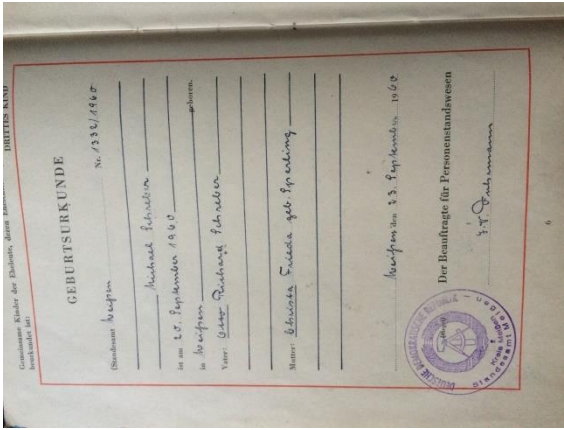 Gemeinsame Kinder der Eheleute, deren
beurkundet ist:
DRITTES KIND
GEBURTSURKUNDE
(Standesamt Meißen Nr. 1332/1960
Michael Schreiber
ist am 20. September 1960
in Meißen geboren.
Vater: Otto Richard Schreiber
Mutter: Christa Frieda geb. Sperling
Meißen den 23. September 1960
Der Beauftragte für Personenstandswesen
DEUTSCHE DEMOKRATISCHE REPUBLIK
Kreis Meißen
Standesamt Meißen
6